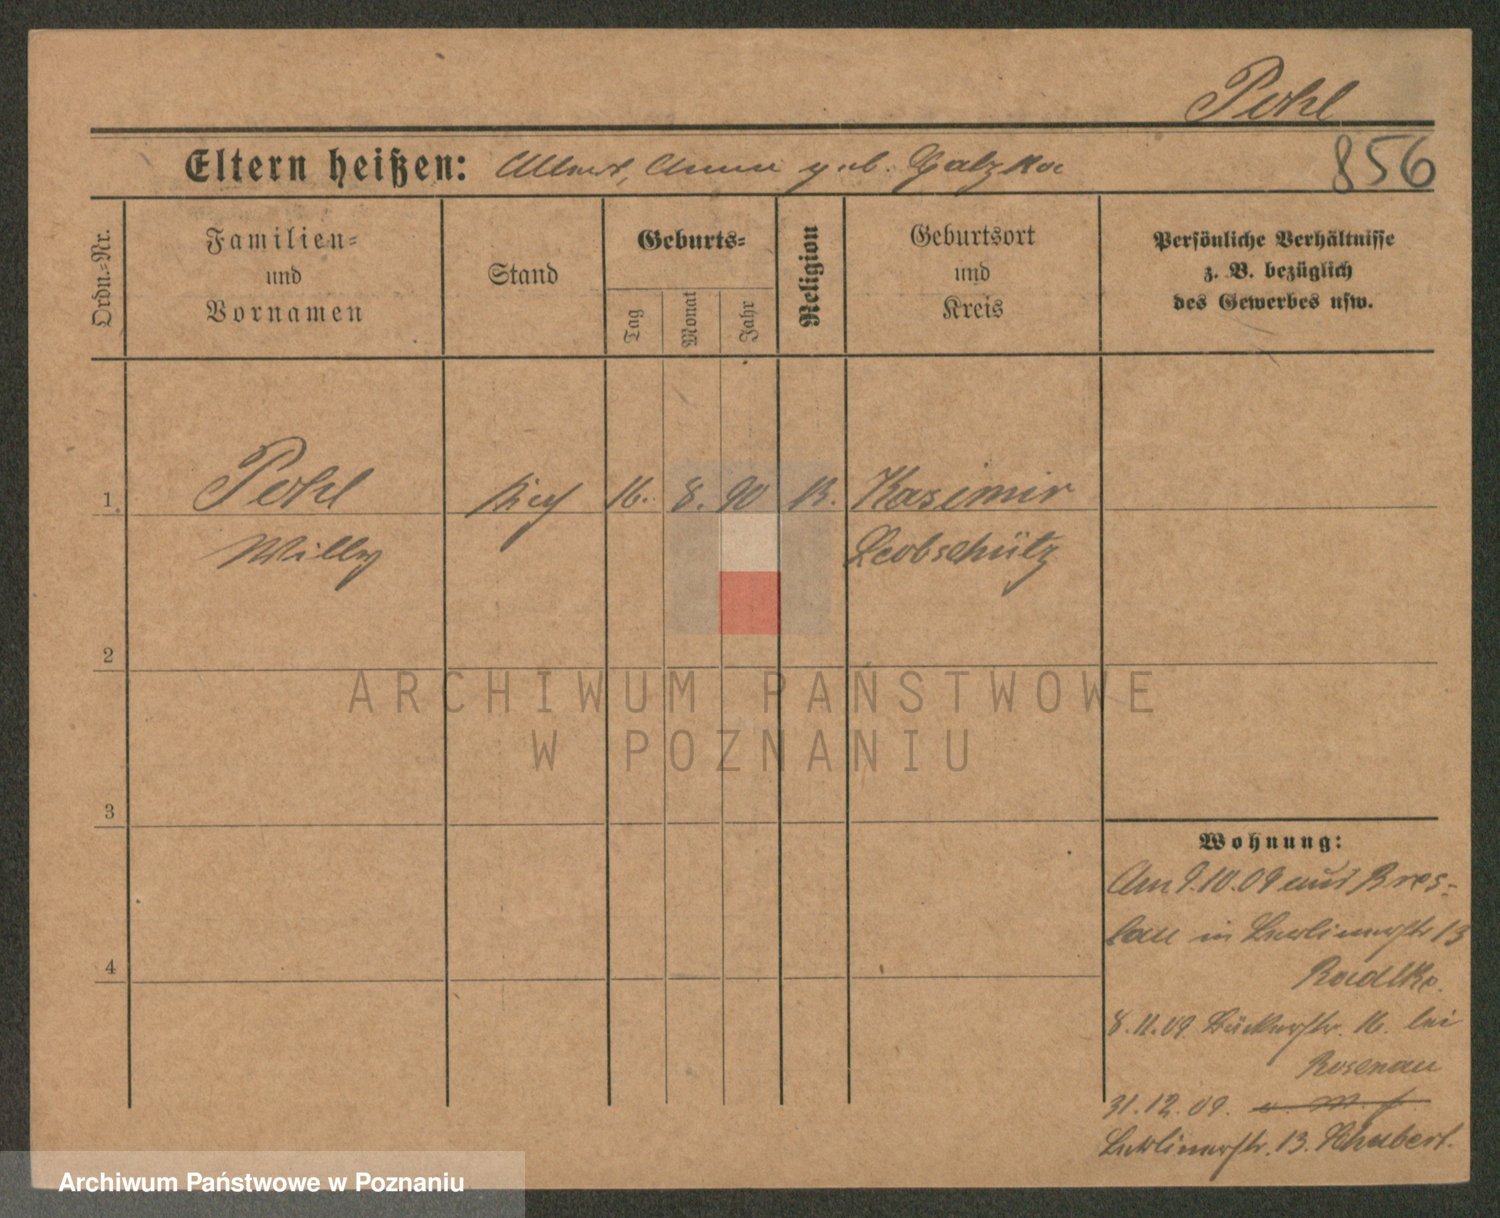 Pohl
Eltern heißen: Albert, Anna geb. Gatzka
856
Ordn.=Nr.
Familien=
und
Vornamen
Stand
Geburts=
Tag
Monat
Jahr
Religion
Geburtsort
und
Kreis
Persönliche Verhältnisse
z. B. bezüglich
des Gewerbes usw.
1. Pohl 16. 8. 90 K. Kasimir
Willy Leobschütz
2
3
4
ARCHIWUM PAŃSTWOWE
W POZNANIU
Wohnung:
Am 9.10.09 aus Bres-
lau in Berlinerstr 13
Radtke.
8.11.09 Bäckerstr. 16. bei
Rosenau
31.12.09.
Berlinerstr. 13. Schubert.
Archiwum Państwowe w Poznaniu